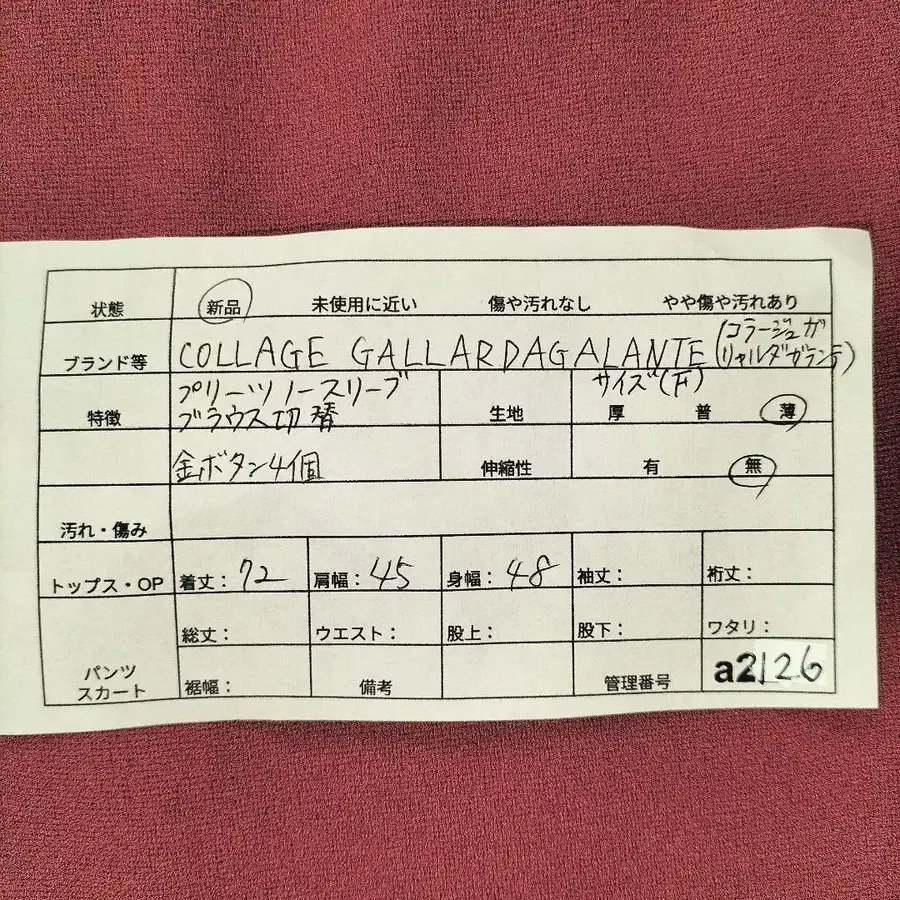 状態 新品 未使用に近い 傷や汚れなし やや傷や汚れあり
ブランド等 COLLAGE GALLARDAGALANTE (コラージュガ
リャルダガランテ)
特徴 プリーツノースリーブ
ブラウス切替
サイズ(F)
生地 厚 普 薄
金ボタン4個 伸縮性 有 無
汚れ・傷み
トップス・OP 着丈: 72 肩幅: 45 身幅: 48 袖丈: 裄丈:
パンツ
スカート
総丈: ウエスト: 股上: 股下: ワタリ:
裾幅: 備考 管理番号 a2126